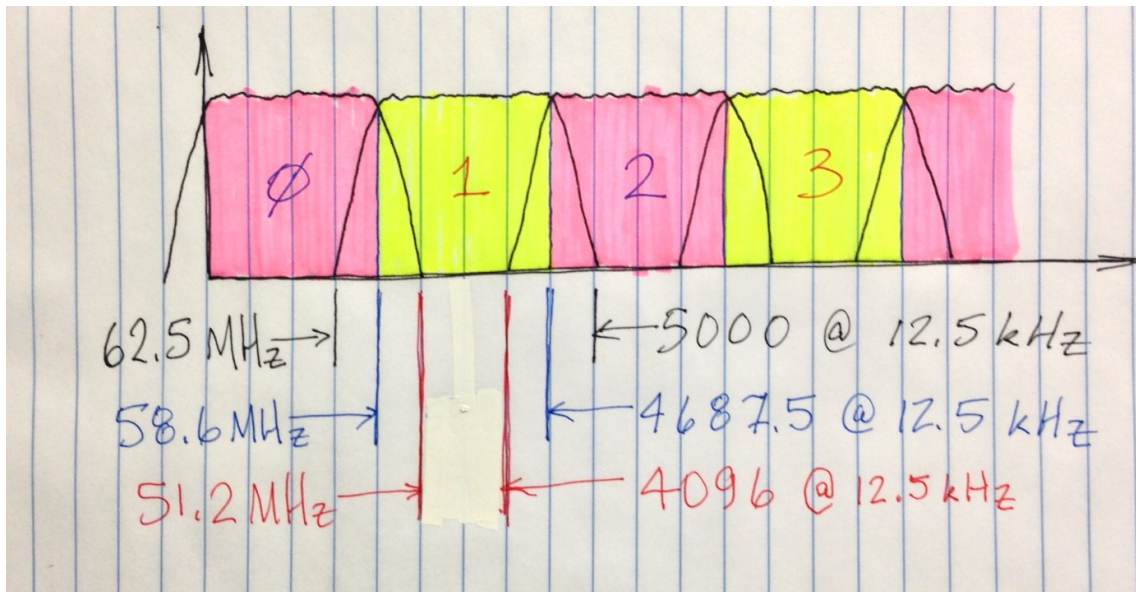 Ø 1 2 3
62.5 MHz 5000 @ 12.5 kHz
58.6 MHz 4687.5 @ 12.5 kHz
51.2 MHz 4096 @ 12.5 kHz